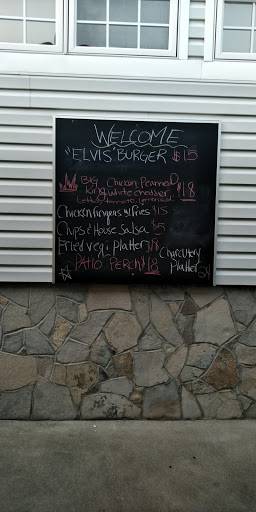 WELCOME
"ELVIS" BURGER $15
BIG Chicken Parmed $18
King white cheddar
Lettuce, tomato,
Chicken fingers w/ fries $15
Chips & House Salsa $5
Fried vegi platter $18
PATIO PERCH $18
Charcutery
Platter